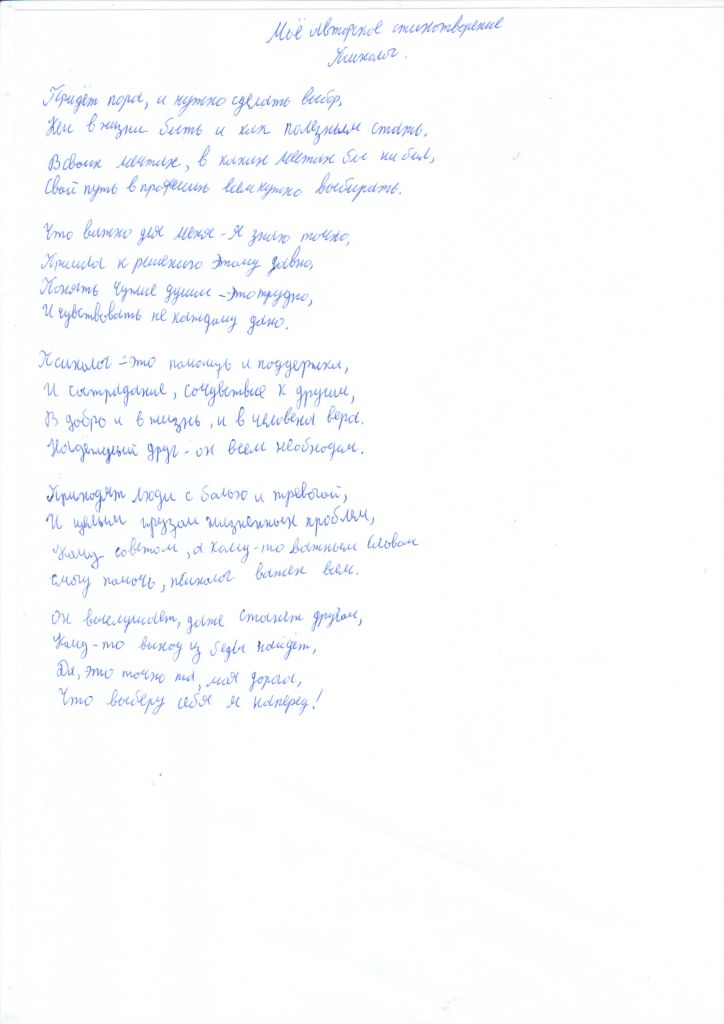 Моё авторское стихотворение
Психолог.
Придёт пора, и нужно сделать выбор,
Кем в жизни быть и как полезным стать.
В своих мечтах, в каких местах бы ни был,
Свой путь в профессии всем нужно выбирать.
Что важно для меня - Я знаю точно,
Пришла к решению этому давно,
Понять чужие души - это трудно,
И чувствовать не каждому дано.
Психолог - это помощь и поддержка,
И сострадание, сочувствие к другим,
В добро и в жизнь, и в человека вера.
Надёжный друг - он всем необходим.
Приходят люди с болью и тревогой,
И целым грузом жизненных проблем,
Кому советом, а кому-то важным словом
Смогу помочь, психолог важен всем.
Он выслушает, даже станет другом,
Кому-то выход из беды найдёт,
Да, это точно та, моя дорога,
Что выберу себе я наперёд!